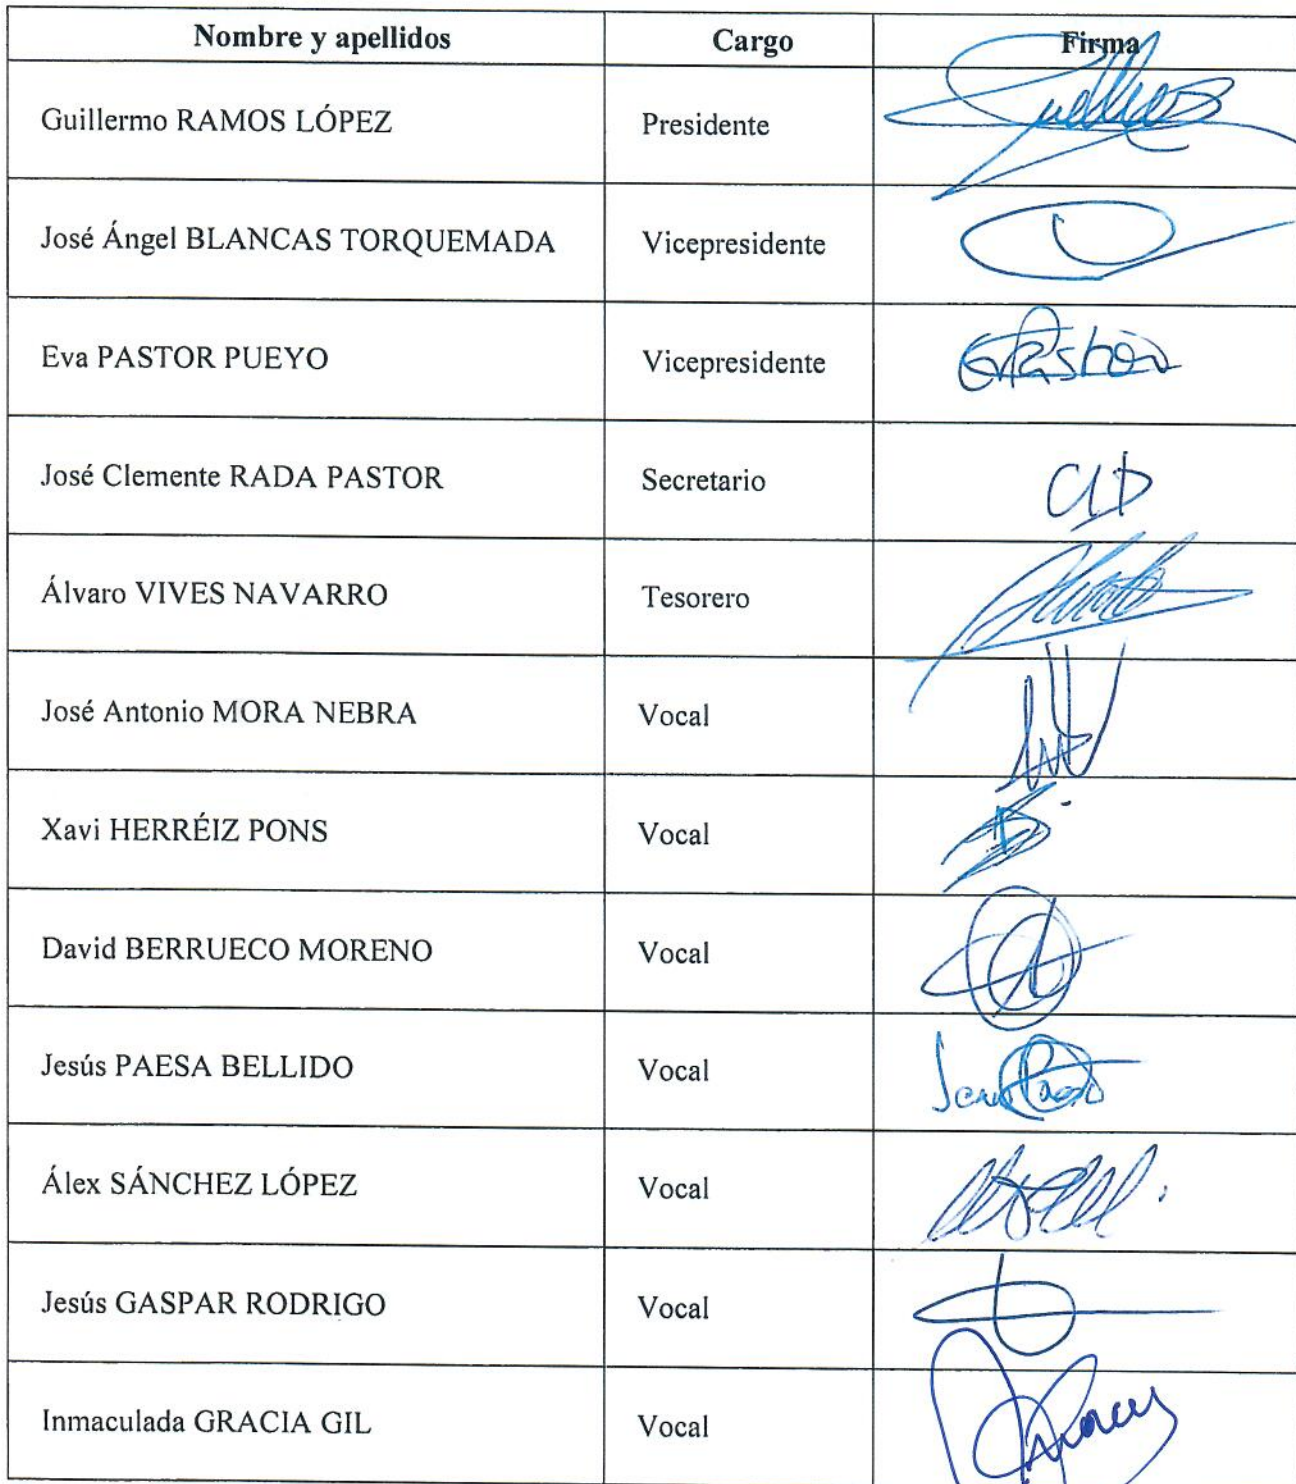 Nombre y apellidos Cargo Firma
Guillermo RAMOS LÓPEZ Presidente
José Ángel BLANCAS TORQUEMADA Vicepresidente
Eva PASTOR PUEYO Vicepresidente
José Clemente RADA PASTOR Secretario
Álvaro VIVES NAVARRO Tesorero
José Antonio MORA NEBRA Vocal
Xavi HERRÉIZ PONS Vocal
David BERRUECO MORENO Vocal
Jesús PAESA BELLIDO Vocal
Álex SÁNCHEZ LÓPEZ Vocal
Jesús GASPAR RODRIGO Vocal
Inmaculada GRACIA GIL Vocal